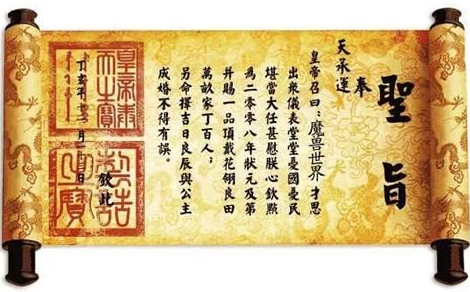 聖旨
奉
天承運
皇帝召曰：魔兽世界才思
出衆儀表堂堂憂國憂民
堪當大任甚慰朕心欽點
爲二零零八年狀元及第
并賜一品頂戴花翎良田
萬畝家丁百人；
另命擇吉日良辰與公主
成婚不得有誤。
欽此